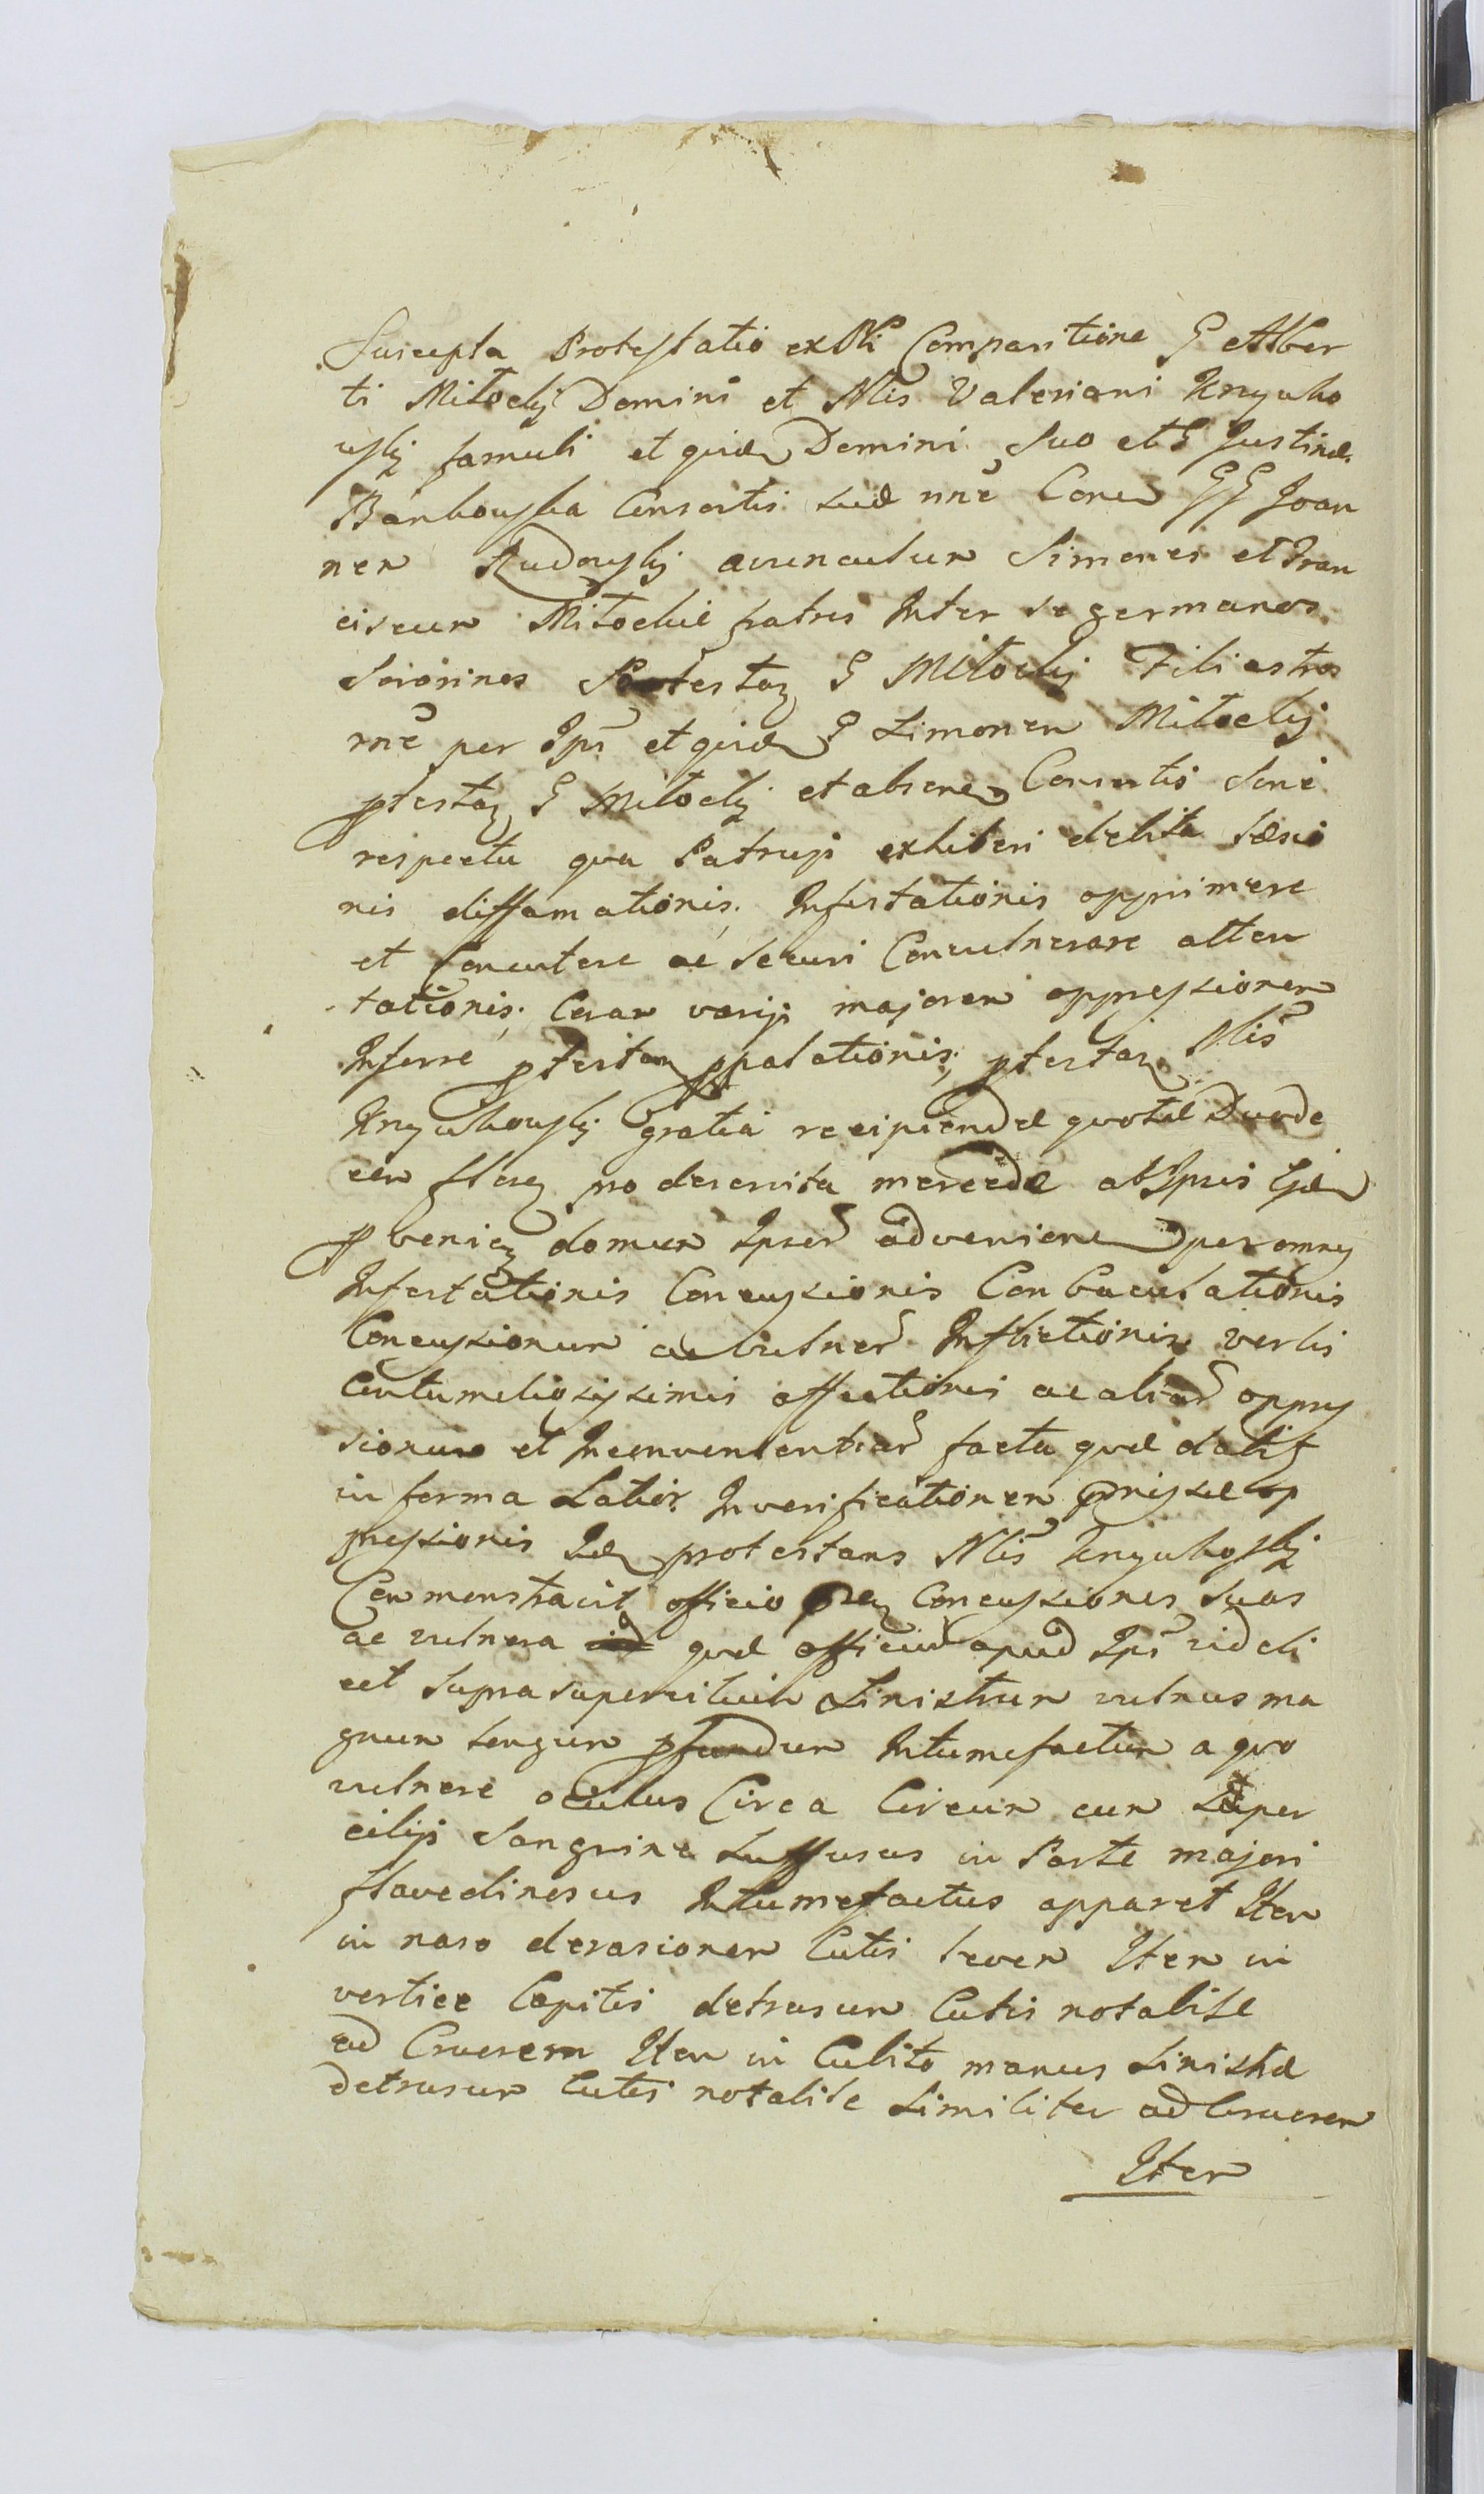 Suscepta Protestatio ex Pti Comparitione G Alber
ti Mitocky Domini et Nlis Valeriani Knyuho
wsky famuli et quid Domini Suo et G Justinæ
Bankowska Consortis suæ nñe Cone GG Joan
nem Rudowsky avunculum Simonem et Fran
ciscum Mitockie fratres Inter se germanos
Sororinos Protestan G Mitocky Filiastros
rñe per Ips et quid G Simonem Mitocky
ptestan G Mitocky et absene Consortis Sine
respectu qua Patruji exhiberi debita Læsio
nis diffamationis. Infestationis opprimere
et Concutere ac Securi Convulnerare atten
tationis. Coram varijs majorem oppressionem
Inferre ptestan ppalationis, ptestan Nlis
Knyuhowsky gratia recipiendæ quotæ Duode
cem flores pro deservita mercede ab Ipsis
pvenien domum Ipsor advenien per omnes
Infestationis Concussionis Conbaculationis
Concussionum ac vulner Inflictionis verbis
Contumeliosissimis affectionis ac aliar oppres
sionum et Inconvenientiar facta quæ
in forma Latior. In verificationem præmissæ op
pressionis Id protestans Nlis Knyuhosky
Conmonstravit officio præn Concussiones Suas
ac vulnera quæ officium apud Ips videli
cet Supra supercilium Sinistrum vulnus ma
gnum longum pfundum Intumefactum a quo
vulnere oculus Circa Circum cum Super
cilijs Sanguine Suffusus in Parte majori
flavedinosus Intumefactus apparet Item
in naso derasionem Cutis levem Item in
vertice Capitis detrusum Cutis notabile
ad Cruorem Item in Cubito manus Sinistræ
detrusum Cutis notabile Similiter ad Cruorem
Item